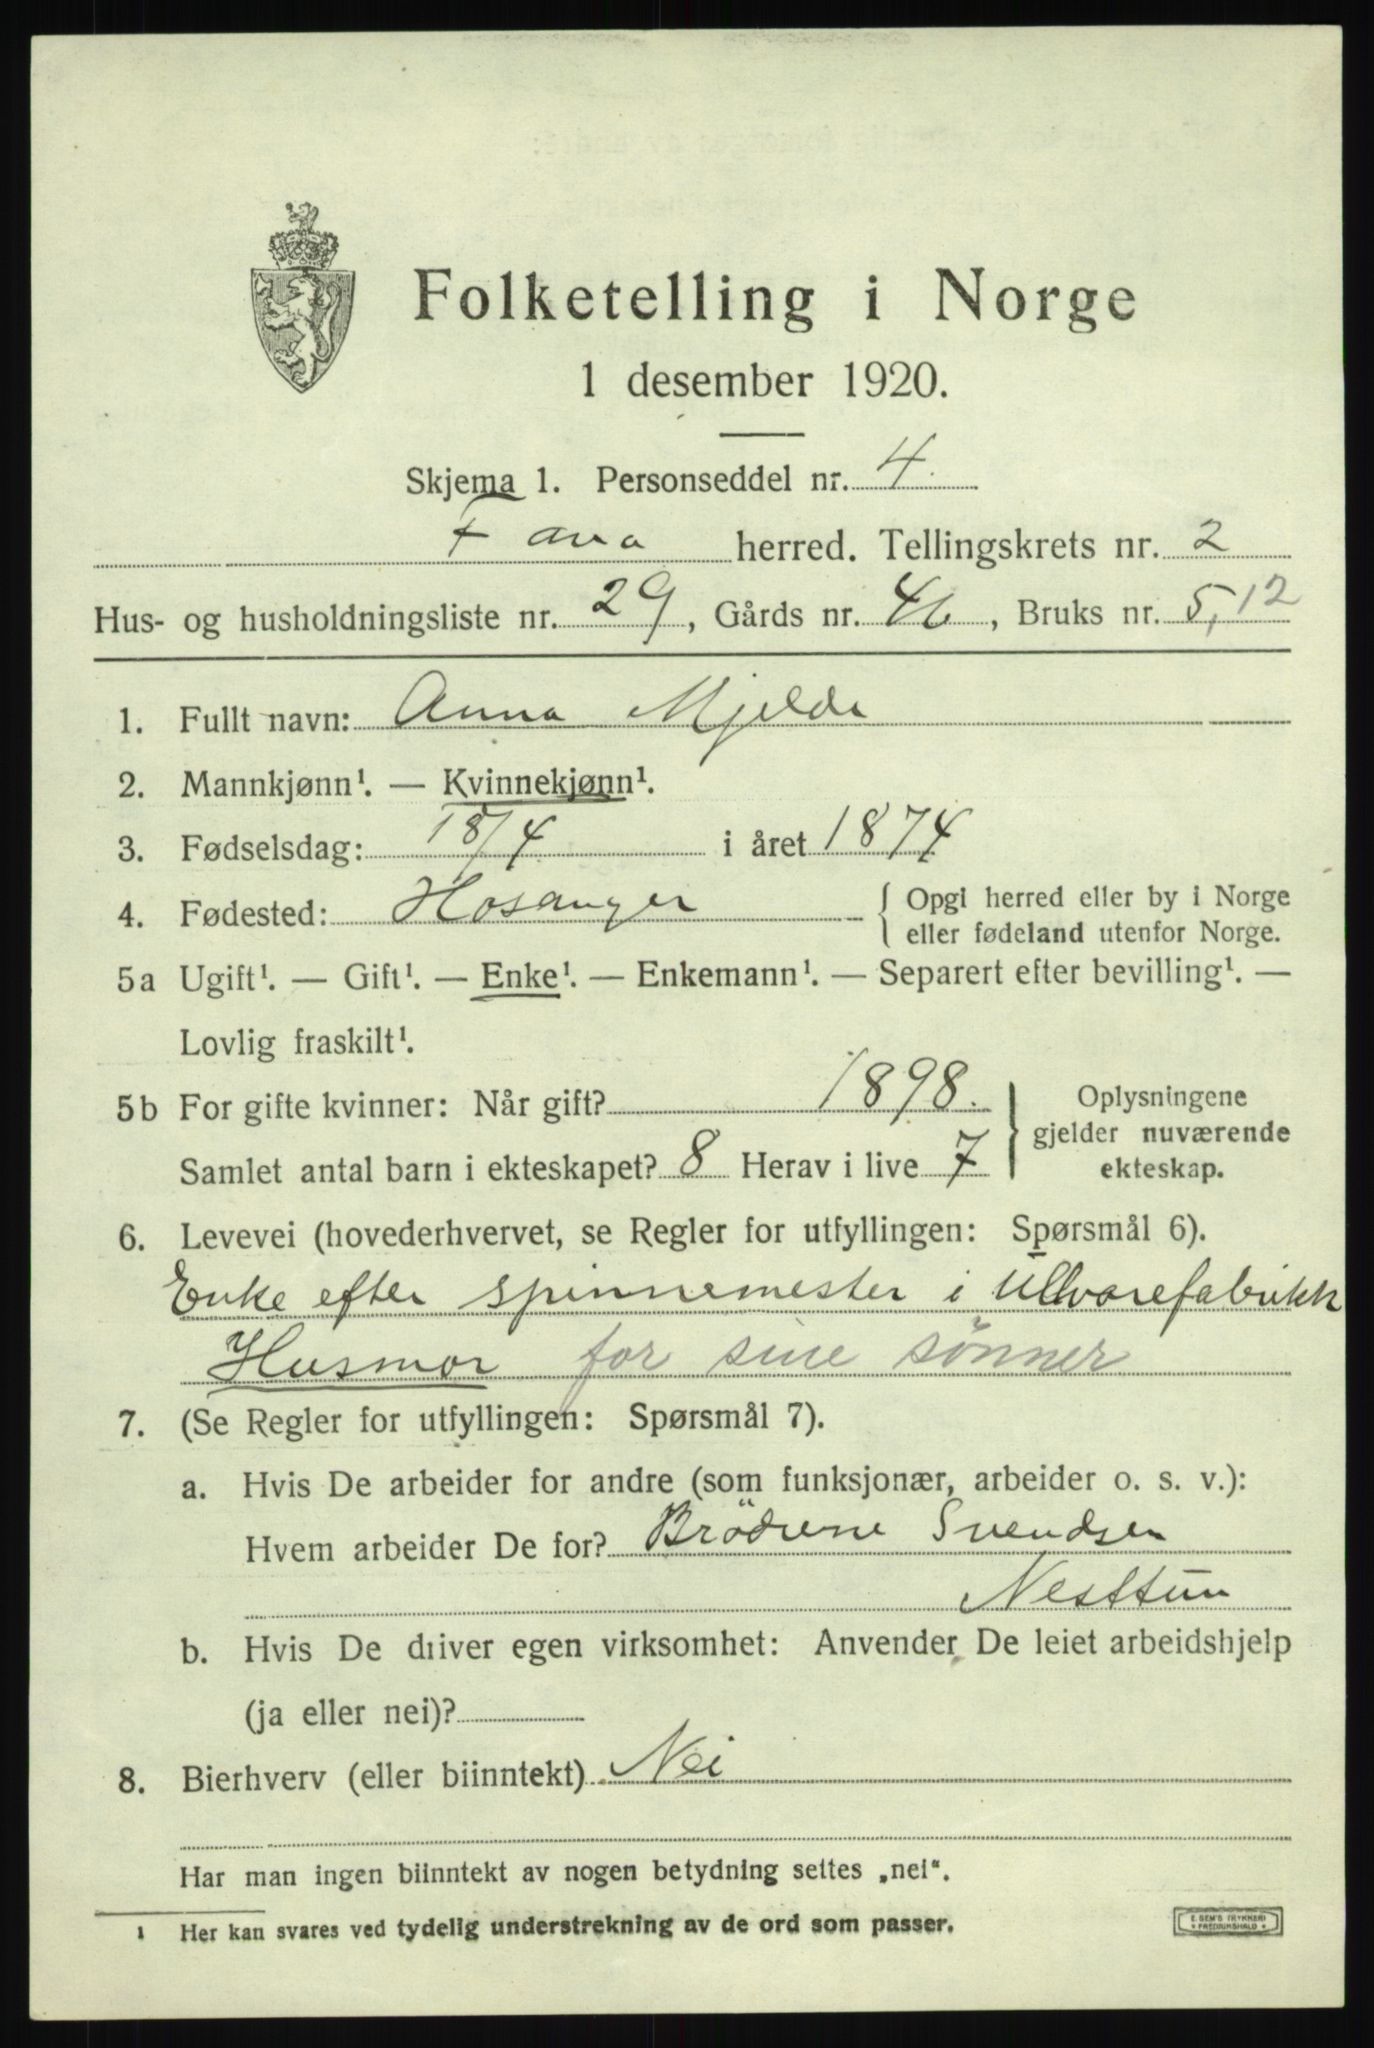 Folketelling i Norge
1 desember 1920.
Skjema 1. Personseddel nr. 4.
Fana herred. Tellingskrets nr. 2
Hus- og husholdningsliste nr. 29, Gårds nr. 46, Bruks nr. 5,12
1. Fullt navn: Anna Mjelde
2. Mannkjønn¹. — Kvinnekjønn¹.
3. Fødselsdag: 18/4 i året 1874
4. Fødested: Hosanger { Opgi herred eller by i Norge
eller fødeland utenfor Norge.
5a Ugift¹. — Gift¹. — Enke¹. — Enkemann¹. — Separert efter bevilling¹. —
Lovlig fraskilt¹.
5b For gifte kvinner: Når gift? 1898. } Oplysningene
gjelder nuværende
Samlet antal barn i ekteskapet? 8 Herav i live 7 ekteskap.
6. Levevei (hovederhvervet, se Regler for utfyllingen: Spørsmål 6).
Enke efter spinnemester i Ullvarefabrikk
Husmor for sine sønner
7. (Se Regler for utfyllingen: Spørsmål 7).
a. Hvis De arbeider for andre (som funksjonær, arbeider o. s. v.):
Hvem arbeider De for? Brödrene Svendsen
Nesttun
b. Hvis De driver egen virksomhet: Anvender De leiet arbeidshjelp
(ja eller nei)?
8. Bierhverv (eller biinntekt) Nei
Har man ingen biinntekt av nogen betydning settes „nei“.
¹ Her kan svares ved tydelig understrekning av de ord som passer.
E. SEM'S TRYKKERI
FREDRIKSHALD